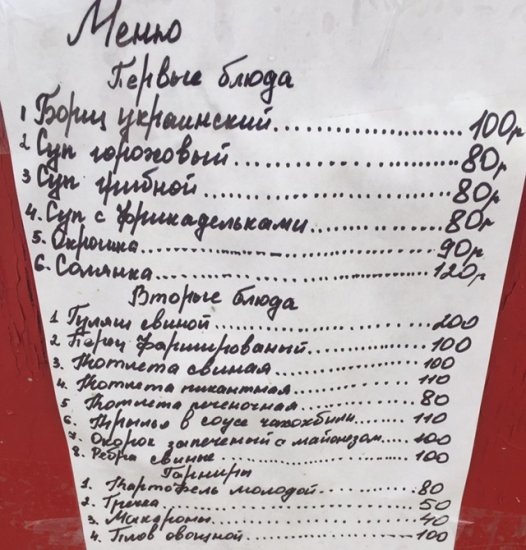 Меню
Первые блюда
1 Борщ украинский............................100р
2 Суп гороховый............................80р
3 Суп грибной............................80р
4. Суп с фрикадельками............................80р
5. Окрошка............................90р
6. Солянка............................120р
Вторые блюда
1 Гуляш свиной............................200
2 Перец фаршированый............................100
3. Котлета свиная............................100
4. Котлета пикантная............................110
5 Котлета печеночная............................80
6. Крылья в соусе чахохбили............................110
7. Окорок запеченый с майонезом............................100
8. Ребра свиные............................100
Гарниры
1. Картофель молодой............................80
2. Гречка............................50
3. Макароны............................40
4. Плов овощной............................100